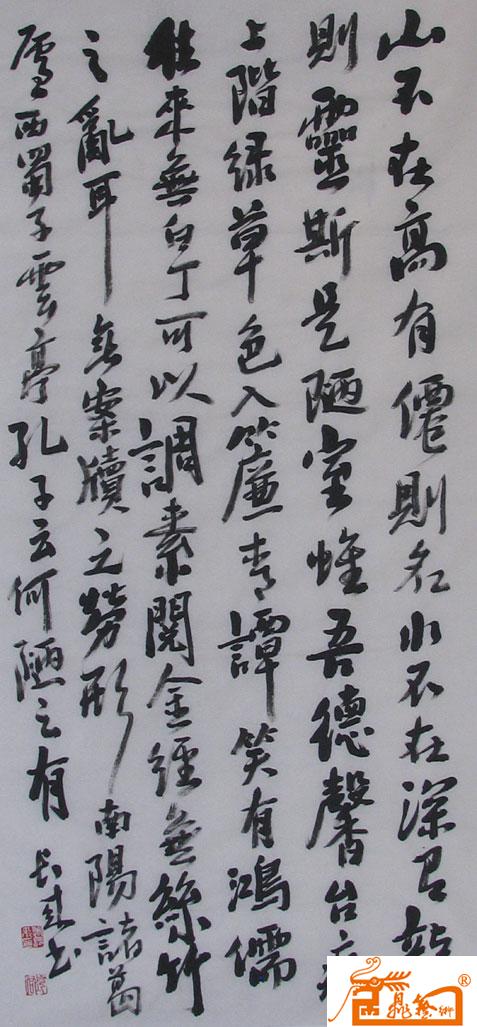 山不在高有僊則名水不在深有龍
則靈斯是陋室惟吾德馨台痕
上階綠草色入簾青譚笑有鴻儒
往來無白丁可以調素閱金經無絲竹
之亂耳無案牘之勞形南陽諸葛
廬西蜀子雲亭孔子云何陋之有
书
藝術®